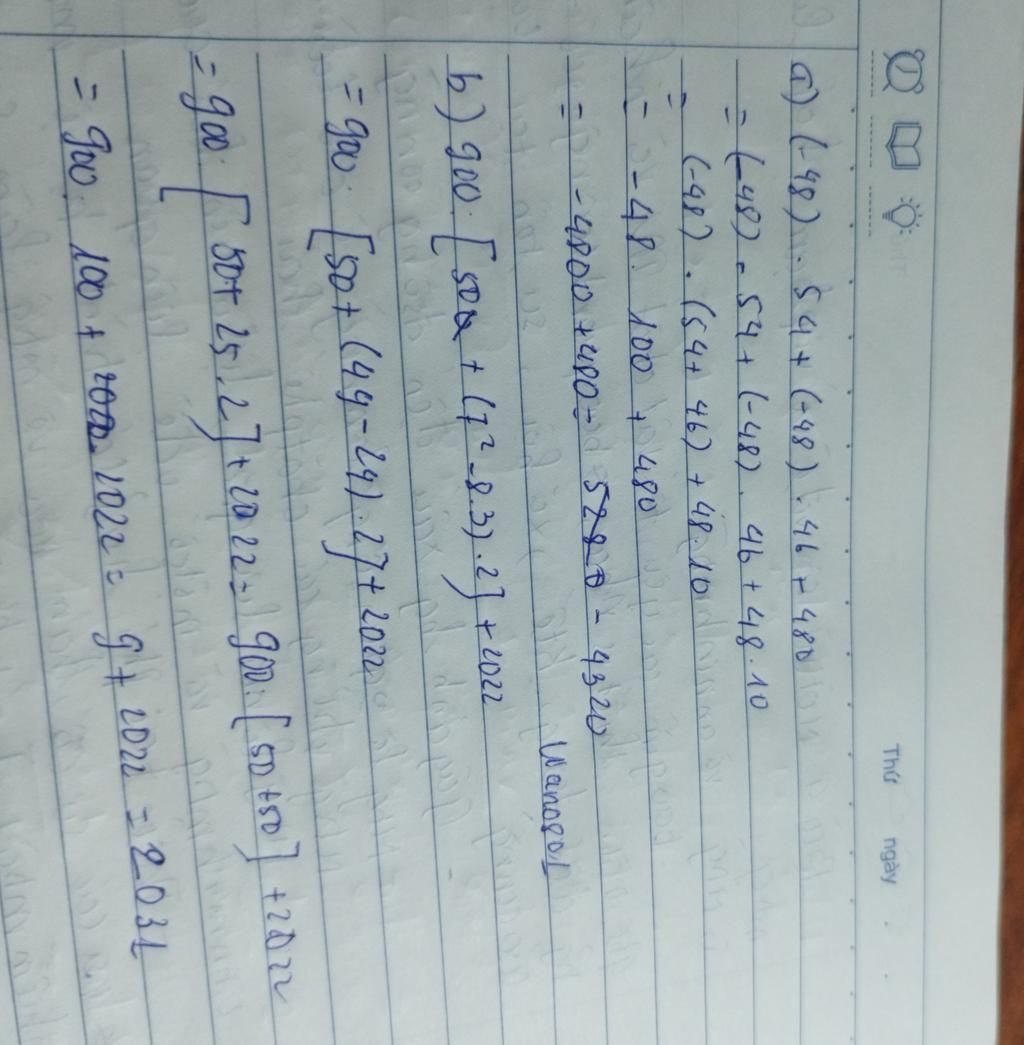 Thứ ngày . .
a) (-48) . 54 + (-48) . 46 + 480
= (-48) . 54 + (-48) . 46 + 48 . 10
= (-48) . (54 + 46) + 48 . 10
= -48 . 100 + 480
= -4800 + 480 = 5280 - 4320
Wano801
b) 900 : [50 + (7² - 8.3) . 2] + 2022
= 900 : [50 + (49 - 24) . 2] + 2022
= 900 : [50 + 25 . 2] + 2022 = 900 : [50 + 50] + 2022
= 900 : 100 + 2022 = 9 + 2022 = 2031